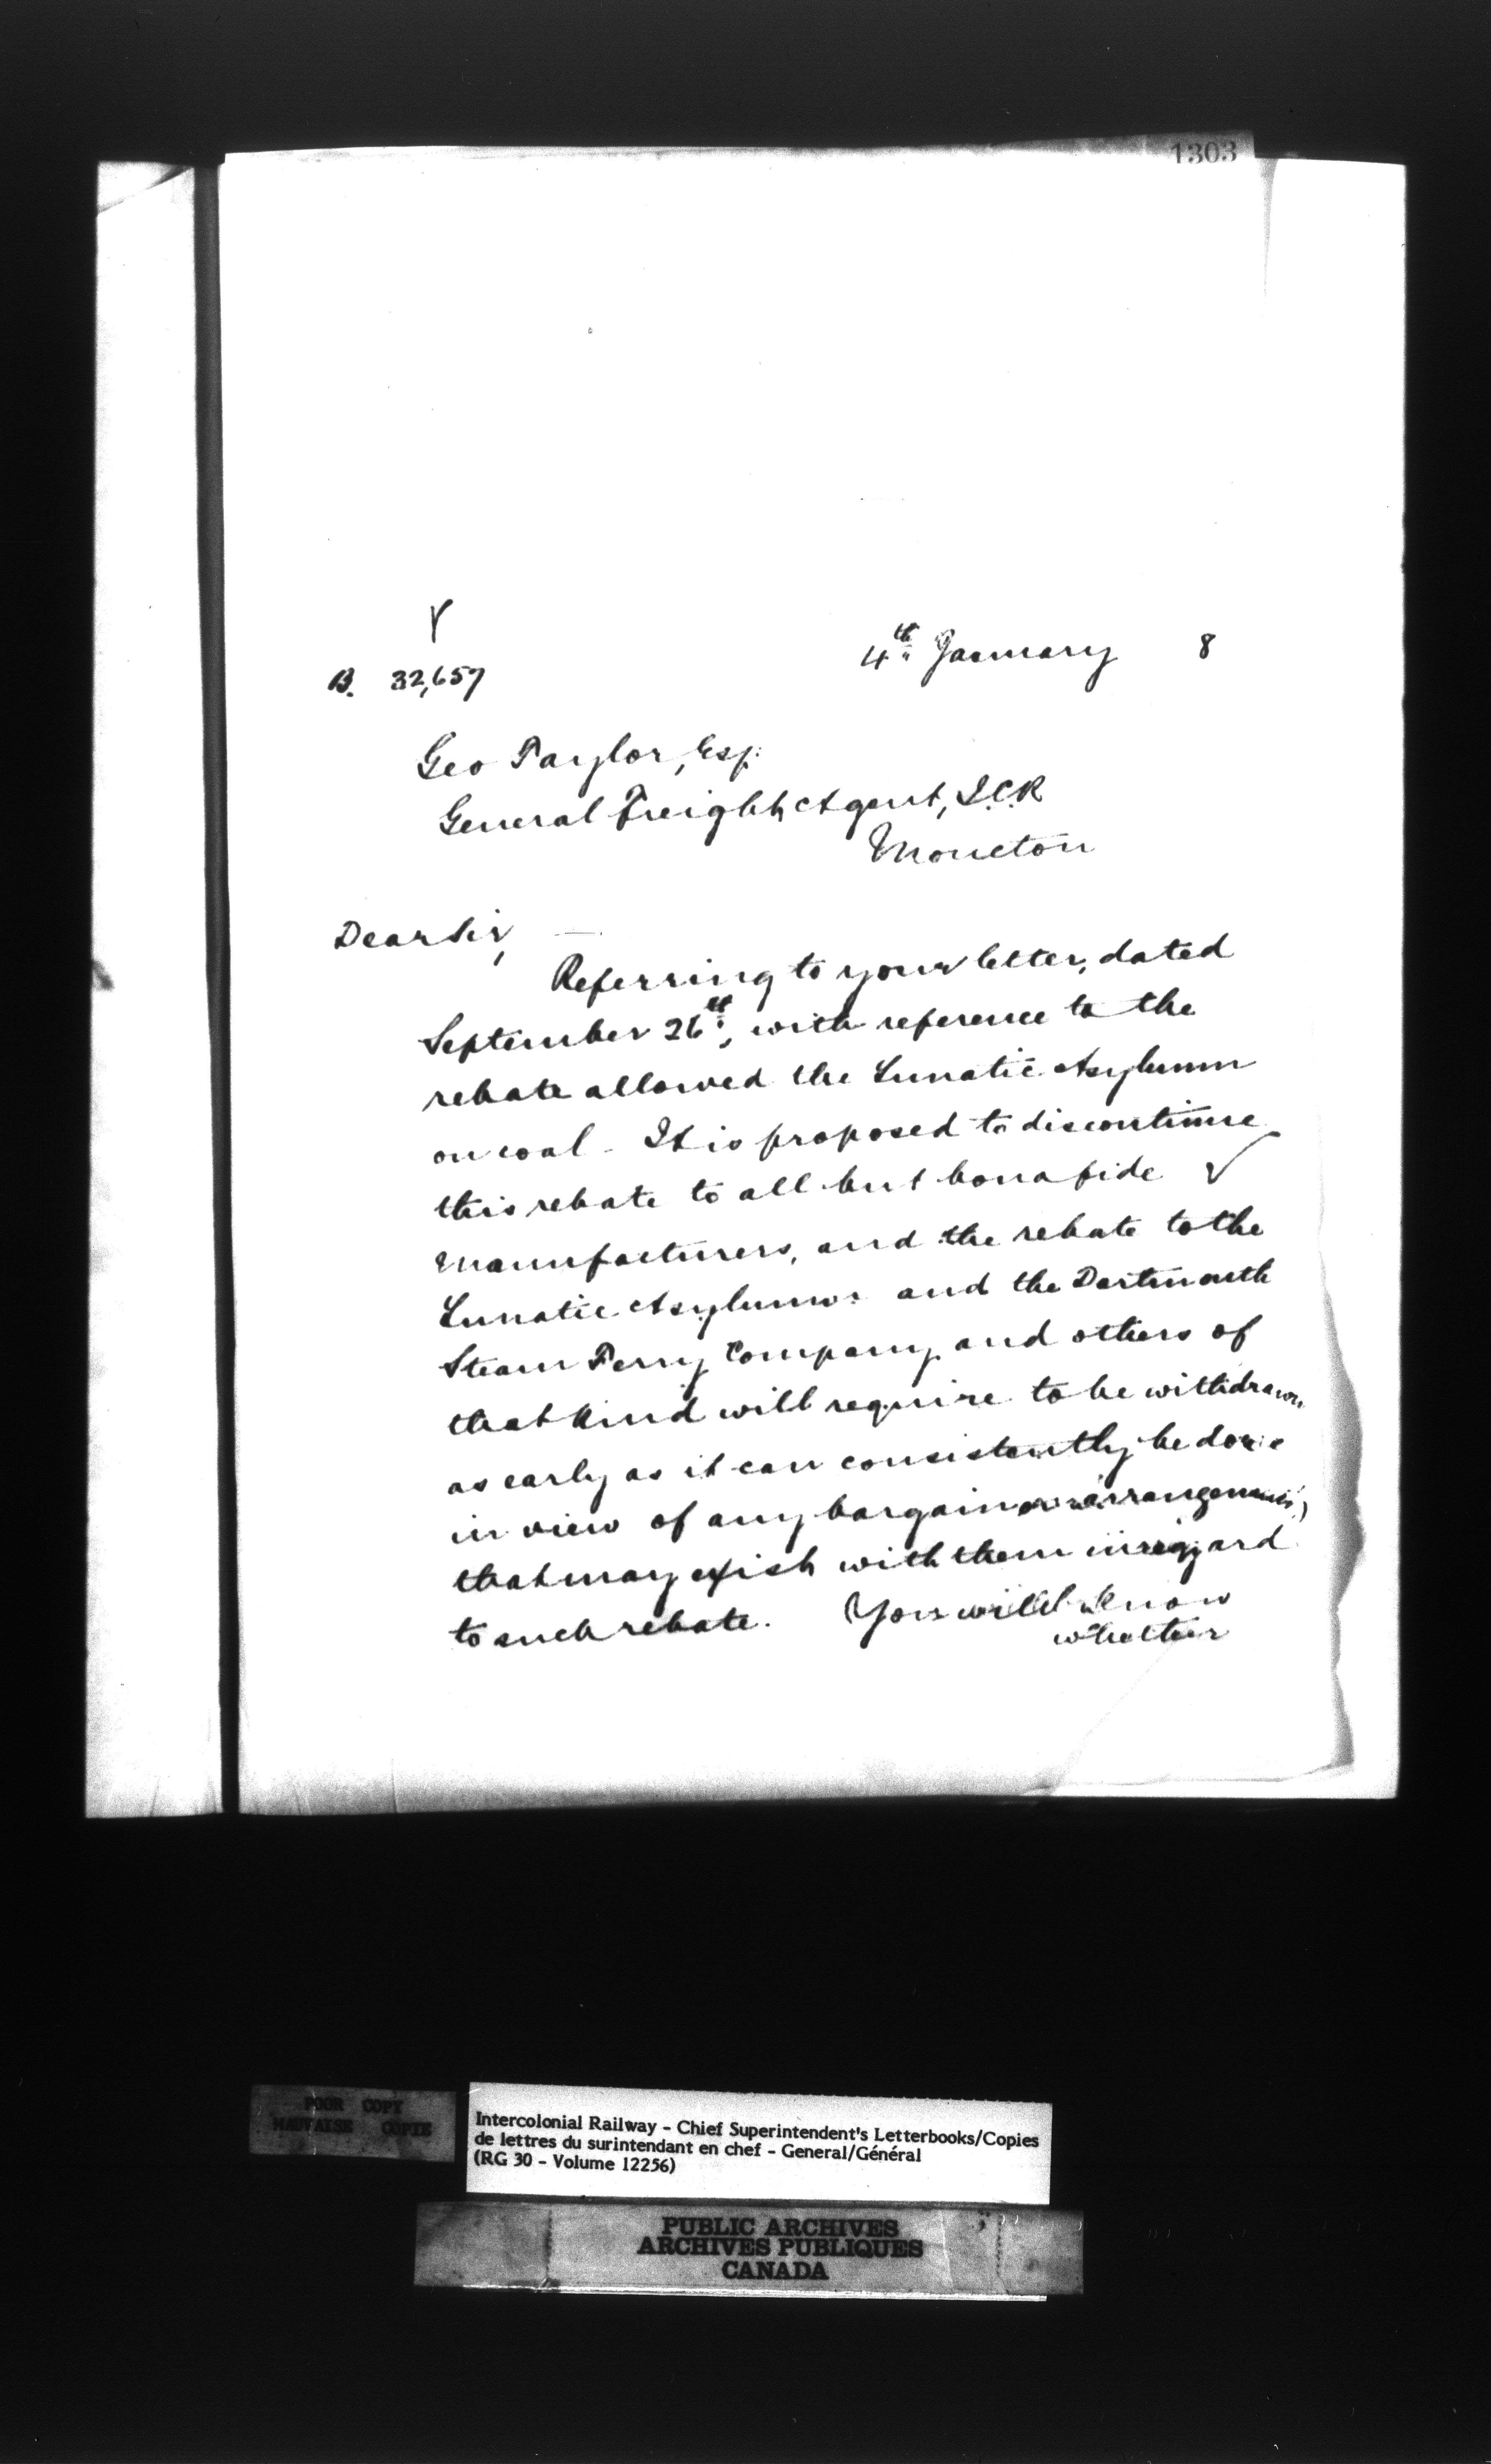 1303
B. 32,657
4th January 8
Geo Taylor, Esq.
General Freight Agent, I.C.R
Moncton
Dear Sir,
Referring to your letter, dated
September 26th, with reference to the
rebate allowed the Lunatic Asylumn
on coal - It is proposed to discontinue
this rebate to all but bonafide ✓
Manufacturers, and the rebate to the
Lunatic Asylumn and the Dartmouth
Steam Ferry Company and others of
that kind will require to be withdrawn
as early as it can consistently be done
in view of any bargain or arrangements,
that may exist with them in regard
to such rebate. You will know
whether
POOR COPY
MAUVAISE COPIE
Intercolonial Railway - Chief Superintendent's Letterbooks/Copies
de lettres du surintendant en chef - General/Général
(RG 30 - Volume 12256)
PUBLIC ARCHIVES
ARCHIVES PUBLIQUES
CANADA